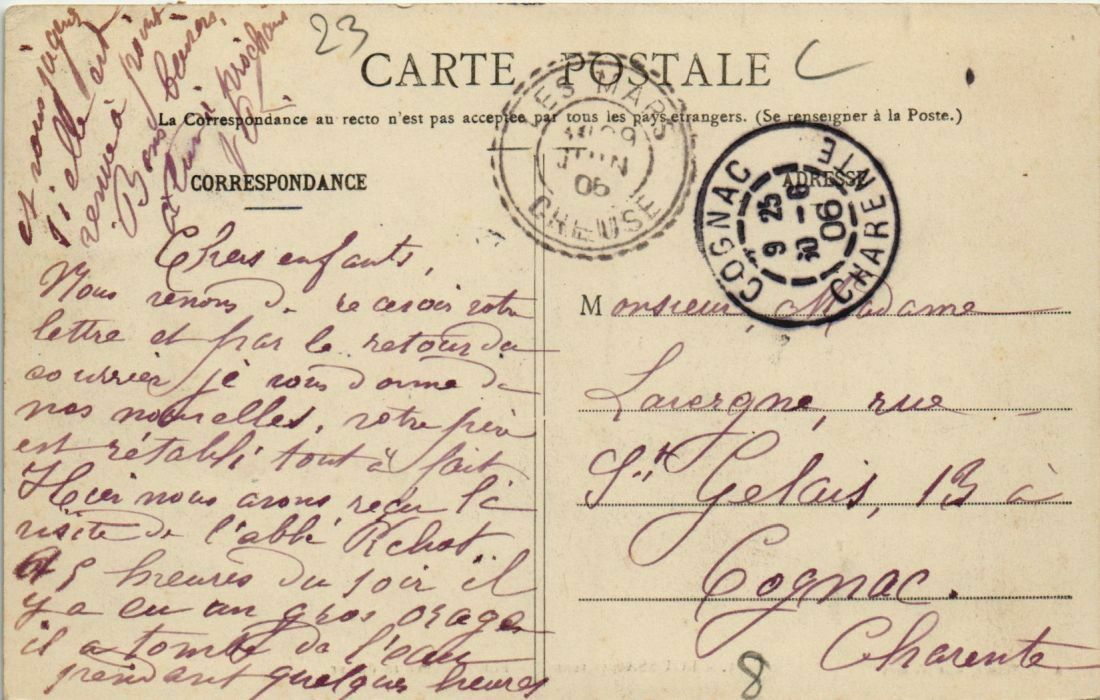 23
CARTE POSTALE
La Correspondance au recto n'est pas acceptée par tous les pays étrangers. (Se renseigner à la Poste.)
CORRESPONDANCE
ADRESSE
LES MARS
29
JUIN
CREUSE
COGNAC
9 25
30 -6
06
CHARENTE
Chers enfants,
Nous venons de recevoir votre
lettre et par le retour du
courrier je vous donne de
nos nouvelles, votre père
est rétabli tout à fait
Hier nous avons reçu la
visite de l'abbé
5 heures du soir il
y a eu un gros orage
il a tombé de l'eau
pendant quelques heures
et nous
si elle est
venue à point
Bons baisers,
prochain
Monsieur, Madame
Lavergne, rue
St Gelais, 13 à
Cognac.
Charente
8